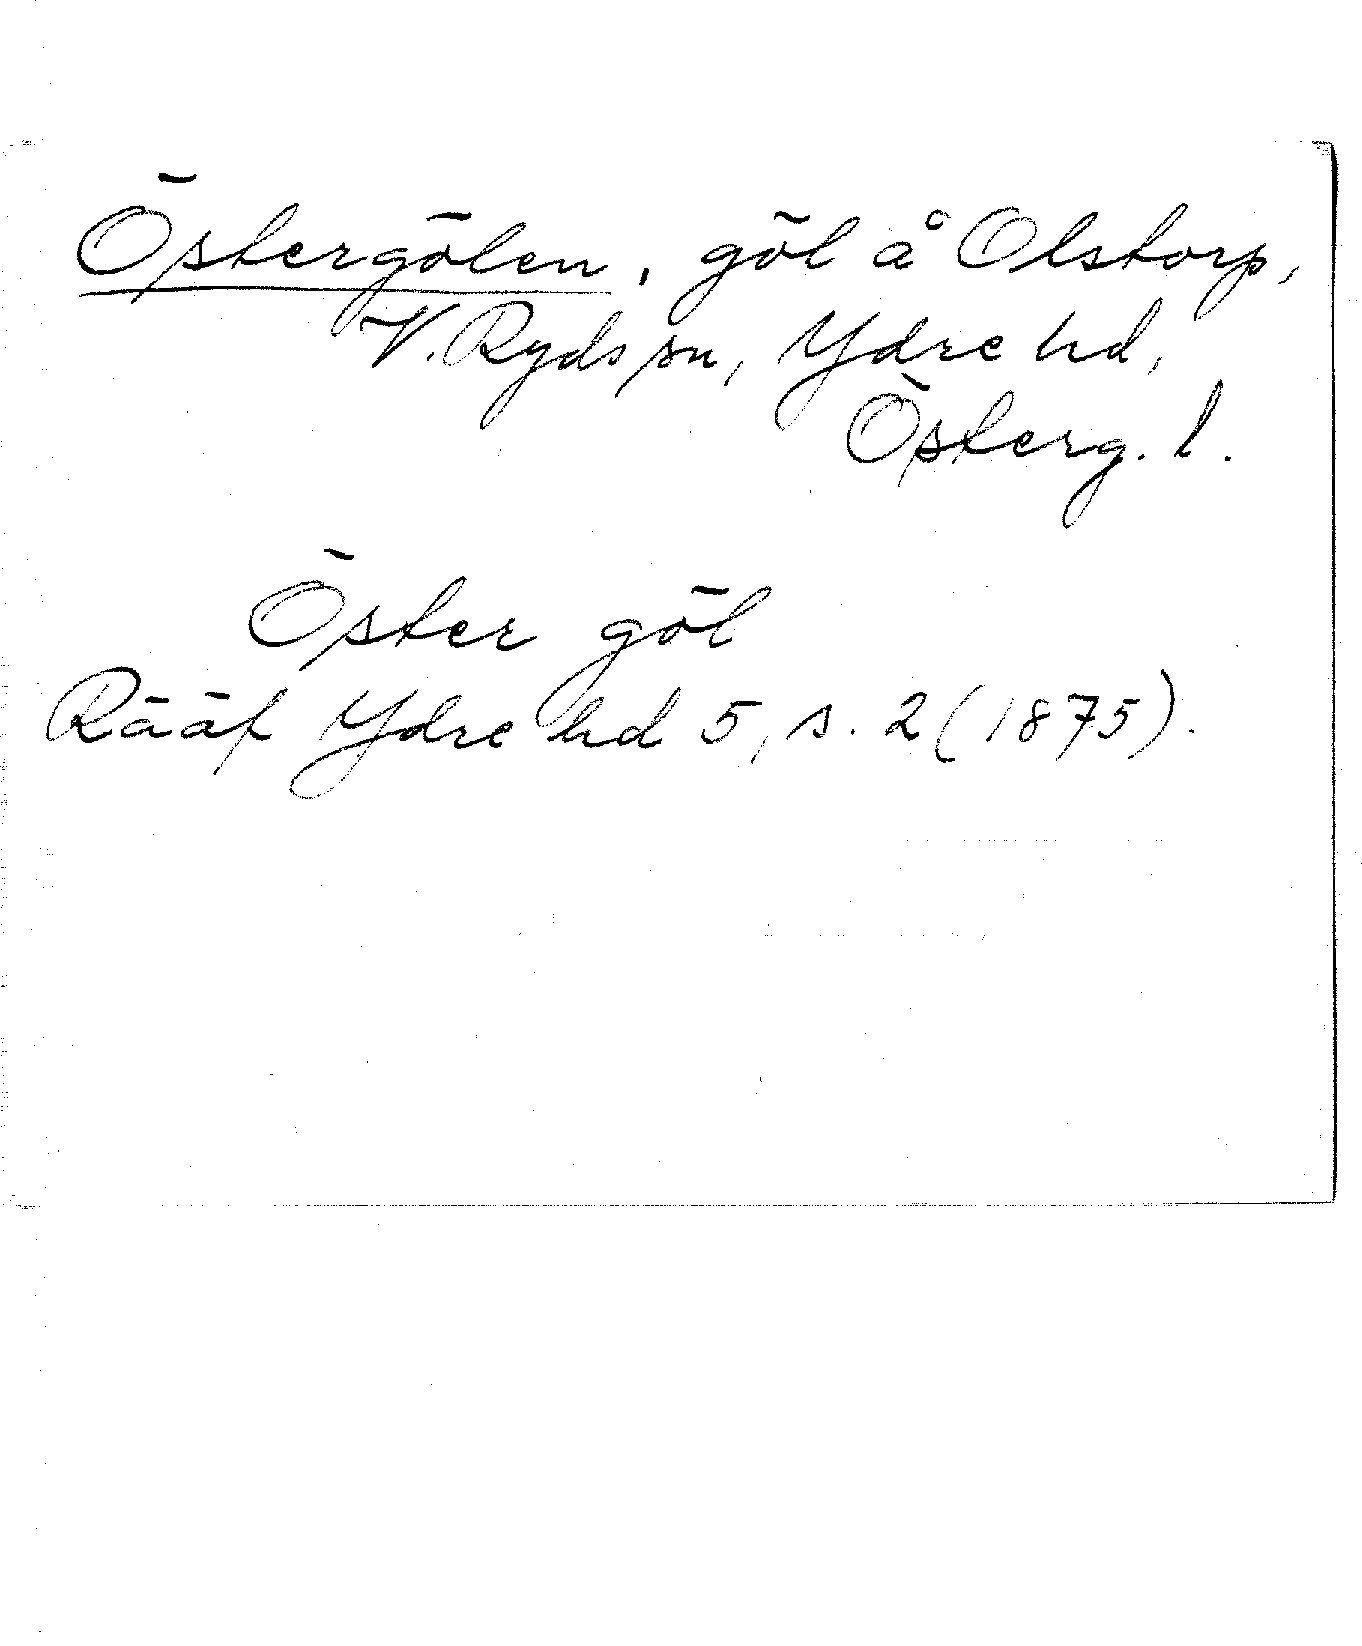 Östergölen, göl å Olstorp,
V. Ryds sn, Ydre hd,
Österg. l.
Öster göl
Rääf Ydre hd 5, s. 2 (1875).